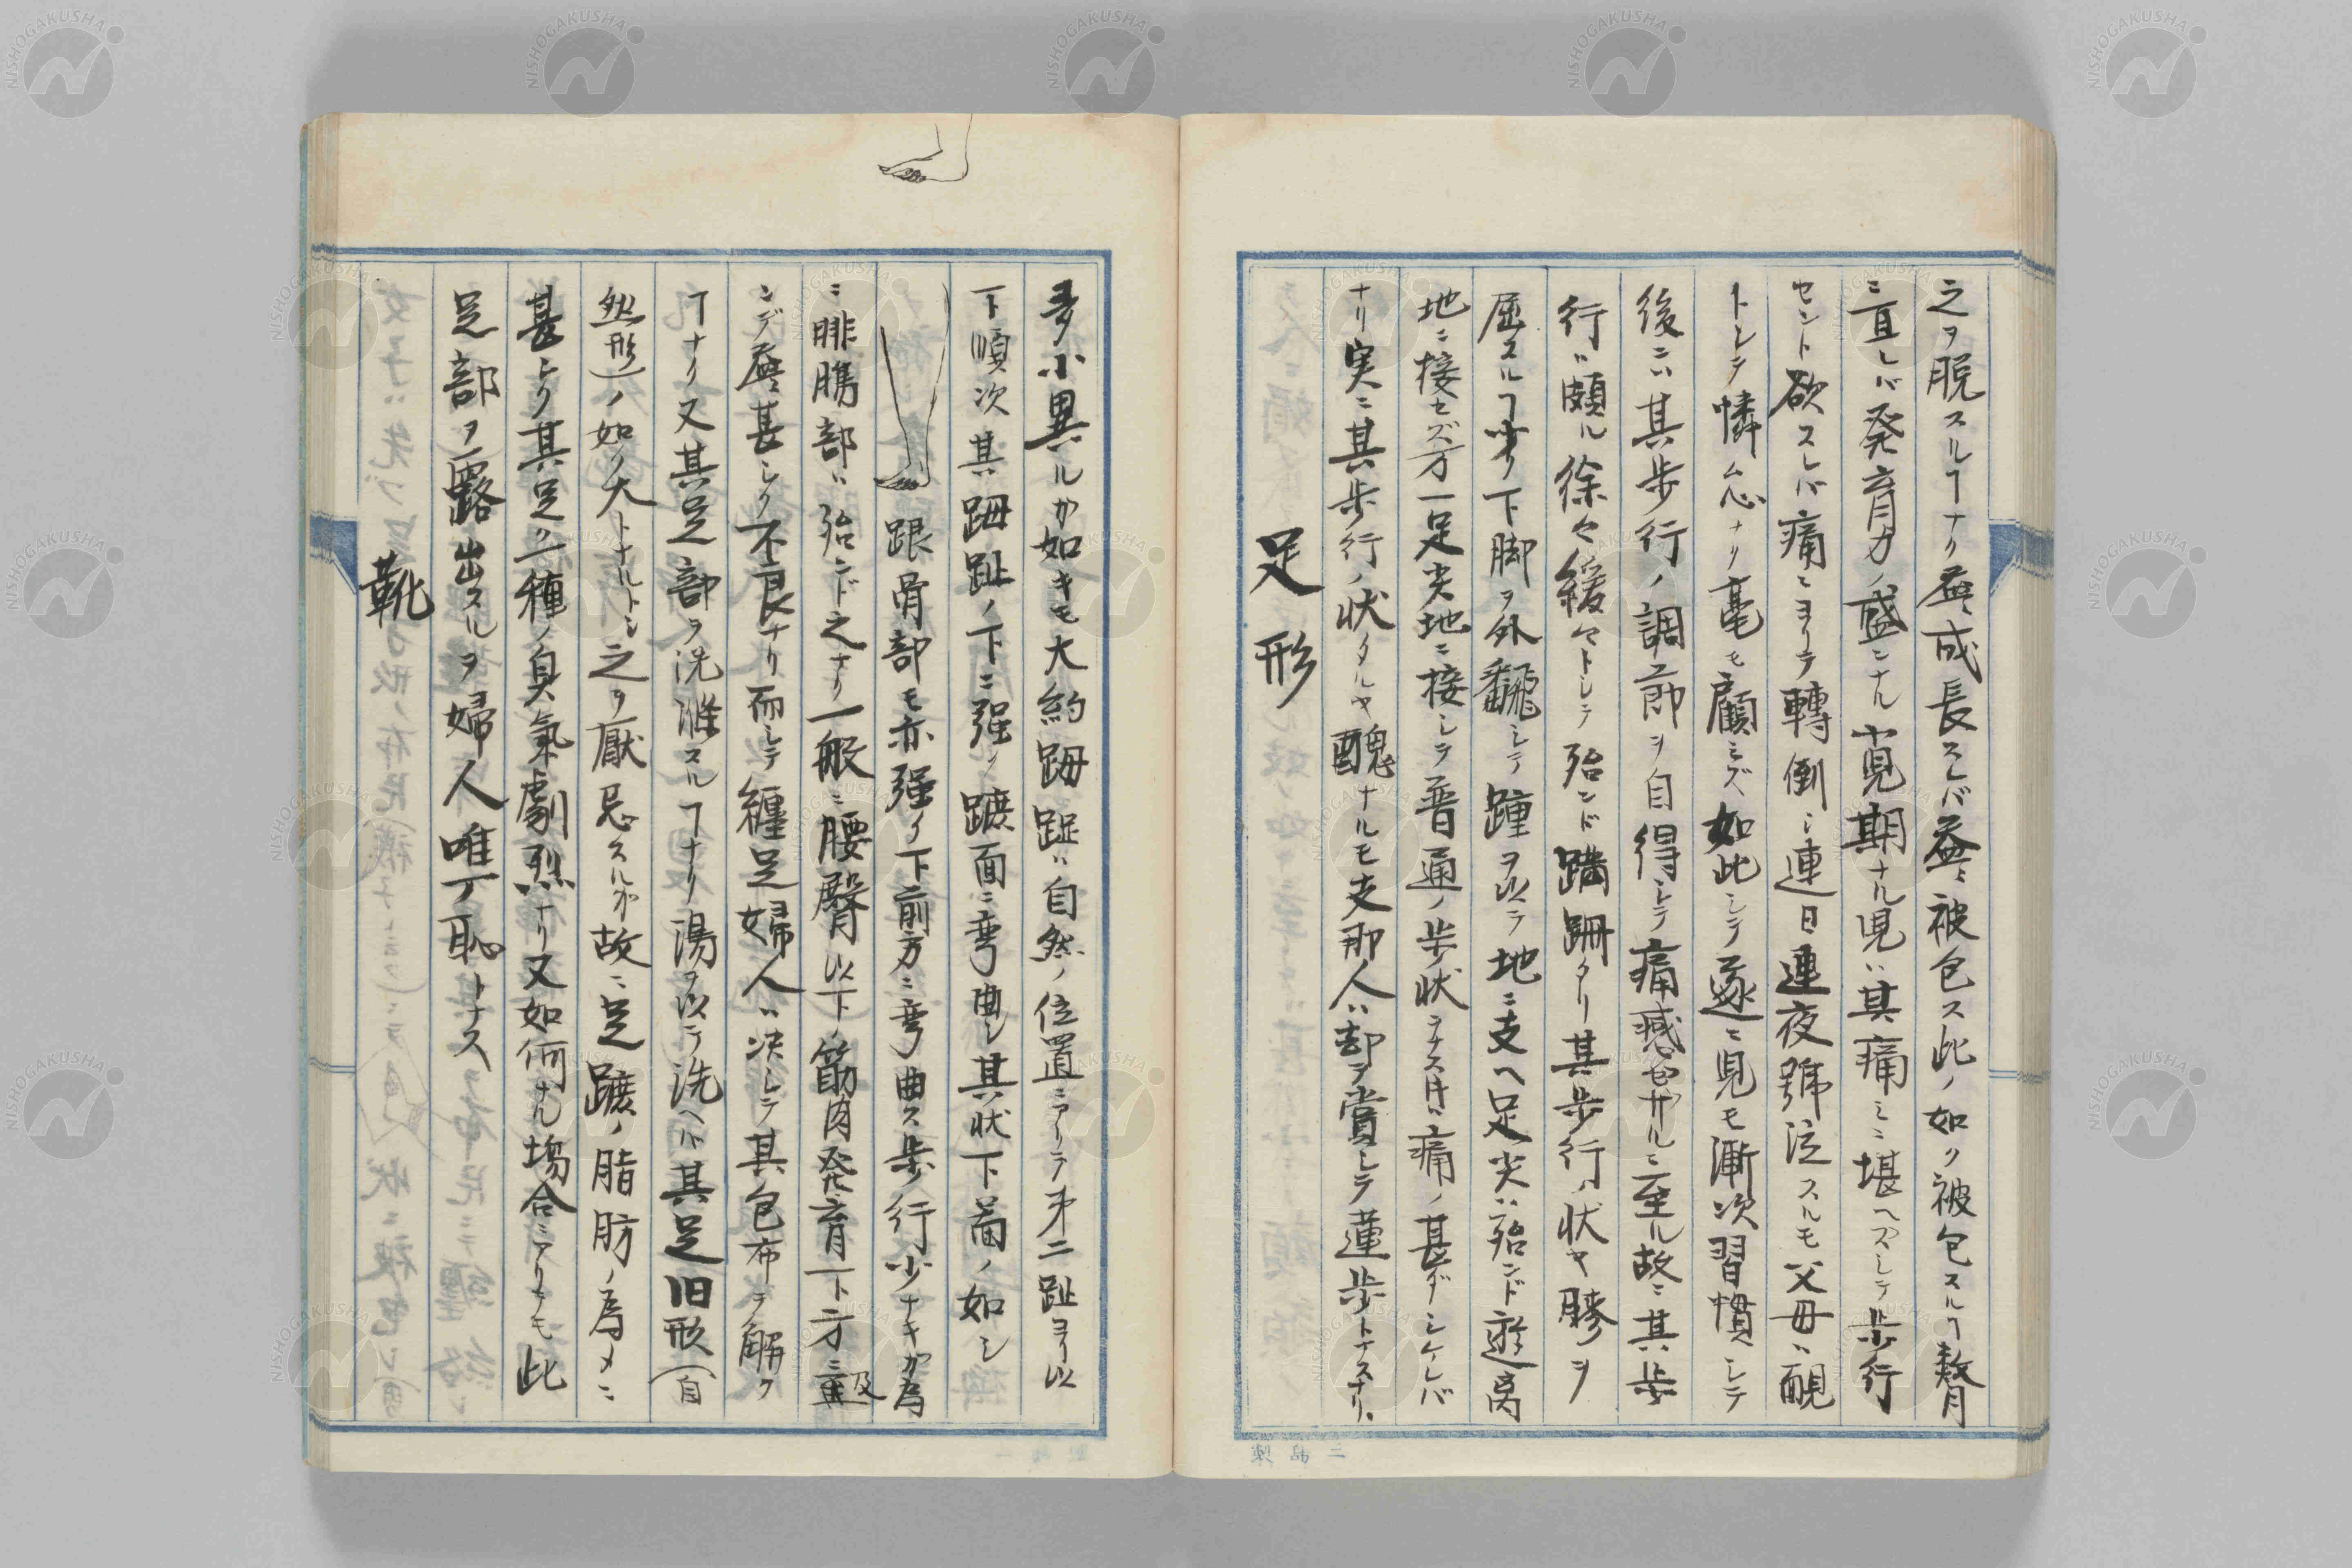 之ヲ脱スルヿナク益〻成長スレバ益〻被包ス此ノ如ク被包スルヿ聱
ニ直レバ発育力ノ盛ンナル小児期ナル児ハ其痛ミニ堪ヘズシテ歩行
セント欲スレバ痛ミヨリテ轉倒シ連日連夜號泣スルモ父母ハ靦
トシテ憐ム心ナク毫モ顧ミズ如此シテ遂ニ児モ漸次習慣シテ
後ニハ其歩行ノ調節ヲ自得シテ痛感セザルニ至ル故ニ其歩
行ハ頗ル徐々緩々トシテ殆ンド蹒跚タリ其歩行ノ状ヤ膝ヲ
屈スルヿ少ク下脚ヲ外飜シテ踵ヲ以テ地ニ支ヘ足尖ハ殆ンド遊离
地ニ接セズ万一足尖地ニ接シテ普通ノ歩状ヲナス時ハ痛ノ甚ダシケレバ
ナリ実ニ其歩行ノ状タルヤ醜ナルモ支那人ハ却テ賞シテ蓮歩トナスナリ.
足形
多小異ルカ如キモ大約𧿹趾ハ自然ノ位置ニアリテ第二趾ヨリ以
下順次其𧿹趾ノ下ニ强ク蹠面ニ弯曲シ其状下啚ノ如シ
跟骨部モ亦强ク下前方ニ弯曲ス歩行少ナキガ為
ニ腓膓部ハ殆ンド之ナク一般ニ腰臀以下ノ筋肉発育下方ニ及
ンデ益〻甚シク不良ナリ而シテ纏足婦人ハ决シテ其包布ヲ解ク
ヿナク又其足部ヲ洗滌スルヿナク湯ヲ以テ洗ヘバ其足旧形(自
然形)ノ如ク大トナルトシ之ヲ厭忌スルガ故ニ足蹠ノ脂肪ノ為メニ
甚シク其足ノ一種ノ臭氣劇烈ナリ又如何ナル塲合ニアリテモ此
足部ヲ露出スルヲ婦人唯一ノ恥トナス
靴